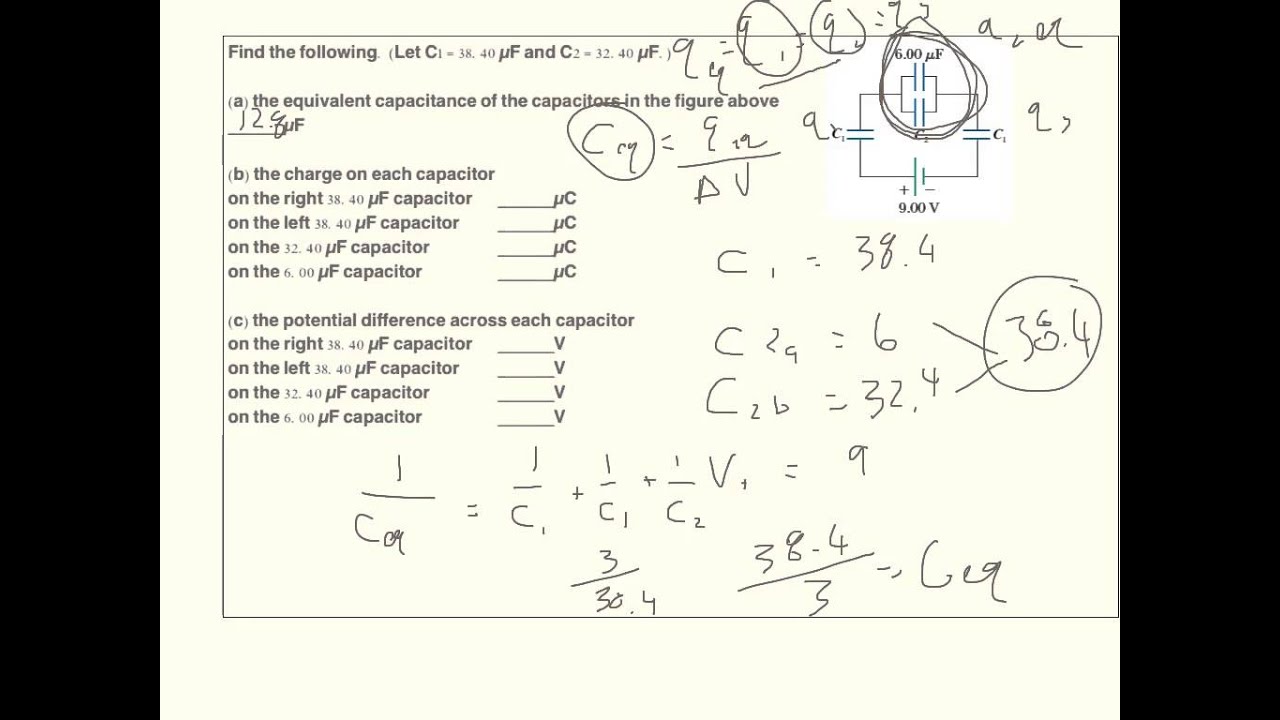 Find the following. (Let C1 = 38. 40 µF and C2 = 32. 40 µF. )
(a) the equivalent capacitance of the capacitors in the figure above
12.8 µF
(b) the charge on each capacitor
on the right 38. 40 µF capacitor _____µC
on the left 38. 40 µF capacitor _____µC
on the 32. 40 µF capacitor _____µC
on the 6. 00 µF capacitor _____µC
(c) the potential difference across each capacitor
on the right 38. 40 µF capacitor _____V
on the left 38. 40 µF capacitor _____V
on the 32. 40 µF capacitor _____V
on the 6. 00 µF capacitor _____V
6.00 µF
C₁
C₂
C₁
+ −
9.00 V
Ceq = qeq / ΔV
C1 = 38.4
C2a = 6
C2b = 32.4
38.4
1/Ceq = 1/C1 + 1/C1 + 1/C2
V+ = 9
3/38.4
38.4/3 = Ceq